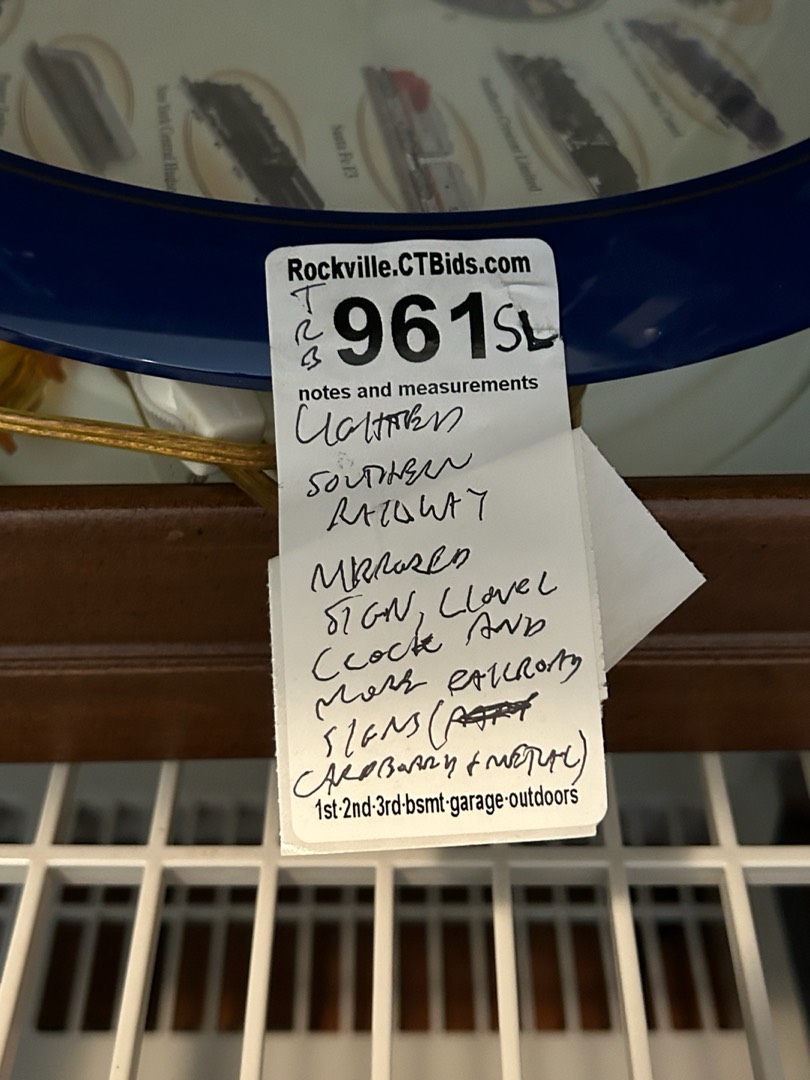 Santa Fe E3
Rockville.CTBids.com
TRB 961 SL
notes and measurements
LIGHTED
SOUTHERN
RAILWAY
MIRRORED
SIGN, LIONEL
CLOCK AND
MORE RAILROAD
SIGNS (
CARDBOARD & METAL)
1st·2nd·3rd·bsmt·garage·outdoors